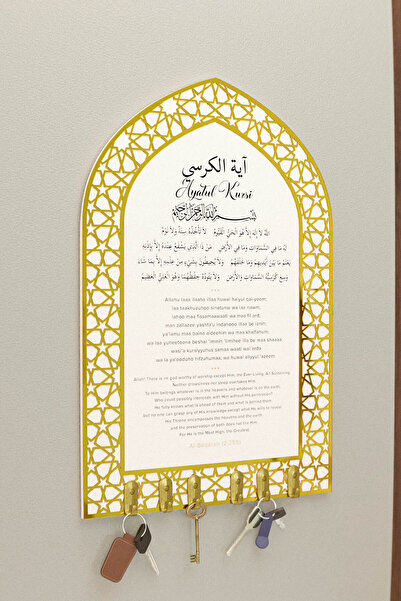 آية الكرسي
Ayatul Kursi
بسم الله الرحمن الرحيم
اللَّهُ لَا إِلَهَ إِلَّا هُوَ الْحَيُّ الْقَيُّومُ لَا تَأْخُذُهُ سِنَةٌ وَلَا نَوْمٌ
لَهُ مَا فِي السَّمَاوَاتِ وَمَا فِي الْأَرْضِ مَنْ ذَا الَّذِي يَشْفَعُ عِنْدَهُ إِلَّا بِإِذْنِهِ
يَعْلَمُ مَا بَيْنَ أَيْدِيهِمْ وَمَا خَلْفَهُمْ وَلَا يُحِيطُونَ بِشَيْءٍ مِنْ عِلْمِهِ إِلَّا بِمَا شَاءَ
وَسِعَ كُرْسِيُّهُ السَّمَاوَاتِ وَالْأَرْضَ وَلَا يَئُودُهُ حِفْظُهُمَا وَهُوَ الْعَلِيُّ الْعَظِيمُ
Allahu laaa ilaaha illaa huwal haiyul qai-yoom;
laa taakhuzuhoo sinatunw wa laa nawm;
lahoo maa fissamaawaati wa maa fil ard;
man zallazee yashfa'u indahooo illaa be iznih;
ya'lamu maa baina aideehim wa maa khalfahum;
wa laa yuheetoona beshai 'immin 'ilmihee illa be maa shaaaa;
wasi'a kursiyyuhus samaa waati wal arda
wa la ya'ooduho hifzuhumaa; wa huwal aliyyul 'azeem
Allah! There is no god worthy of worship except Him, the Ever-Living, All-Sustaining.
Neither drowsiness nor sleep overtakes Him.
To Him belongs whatever is in the heavens and whatever is on the earth.
Who could possibly intercede with Him without His permission?
He fully knows what is ahead of them and what is behind them,
but no one can grasp any of His knowledge except what He wills to reveal.
His Throne encompasses the heavens and the earth
and the preservation of both does not tire Him.
For He is the Most High, the Greatest.
Al-Baqarah (2:255)